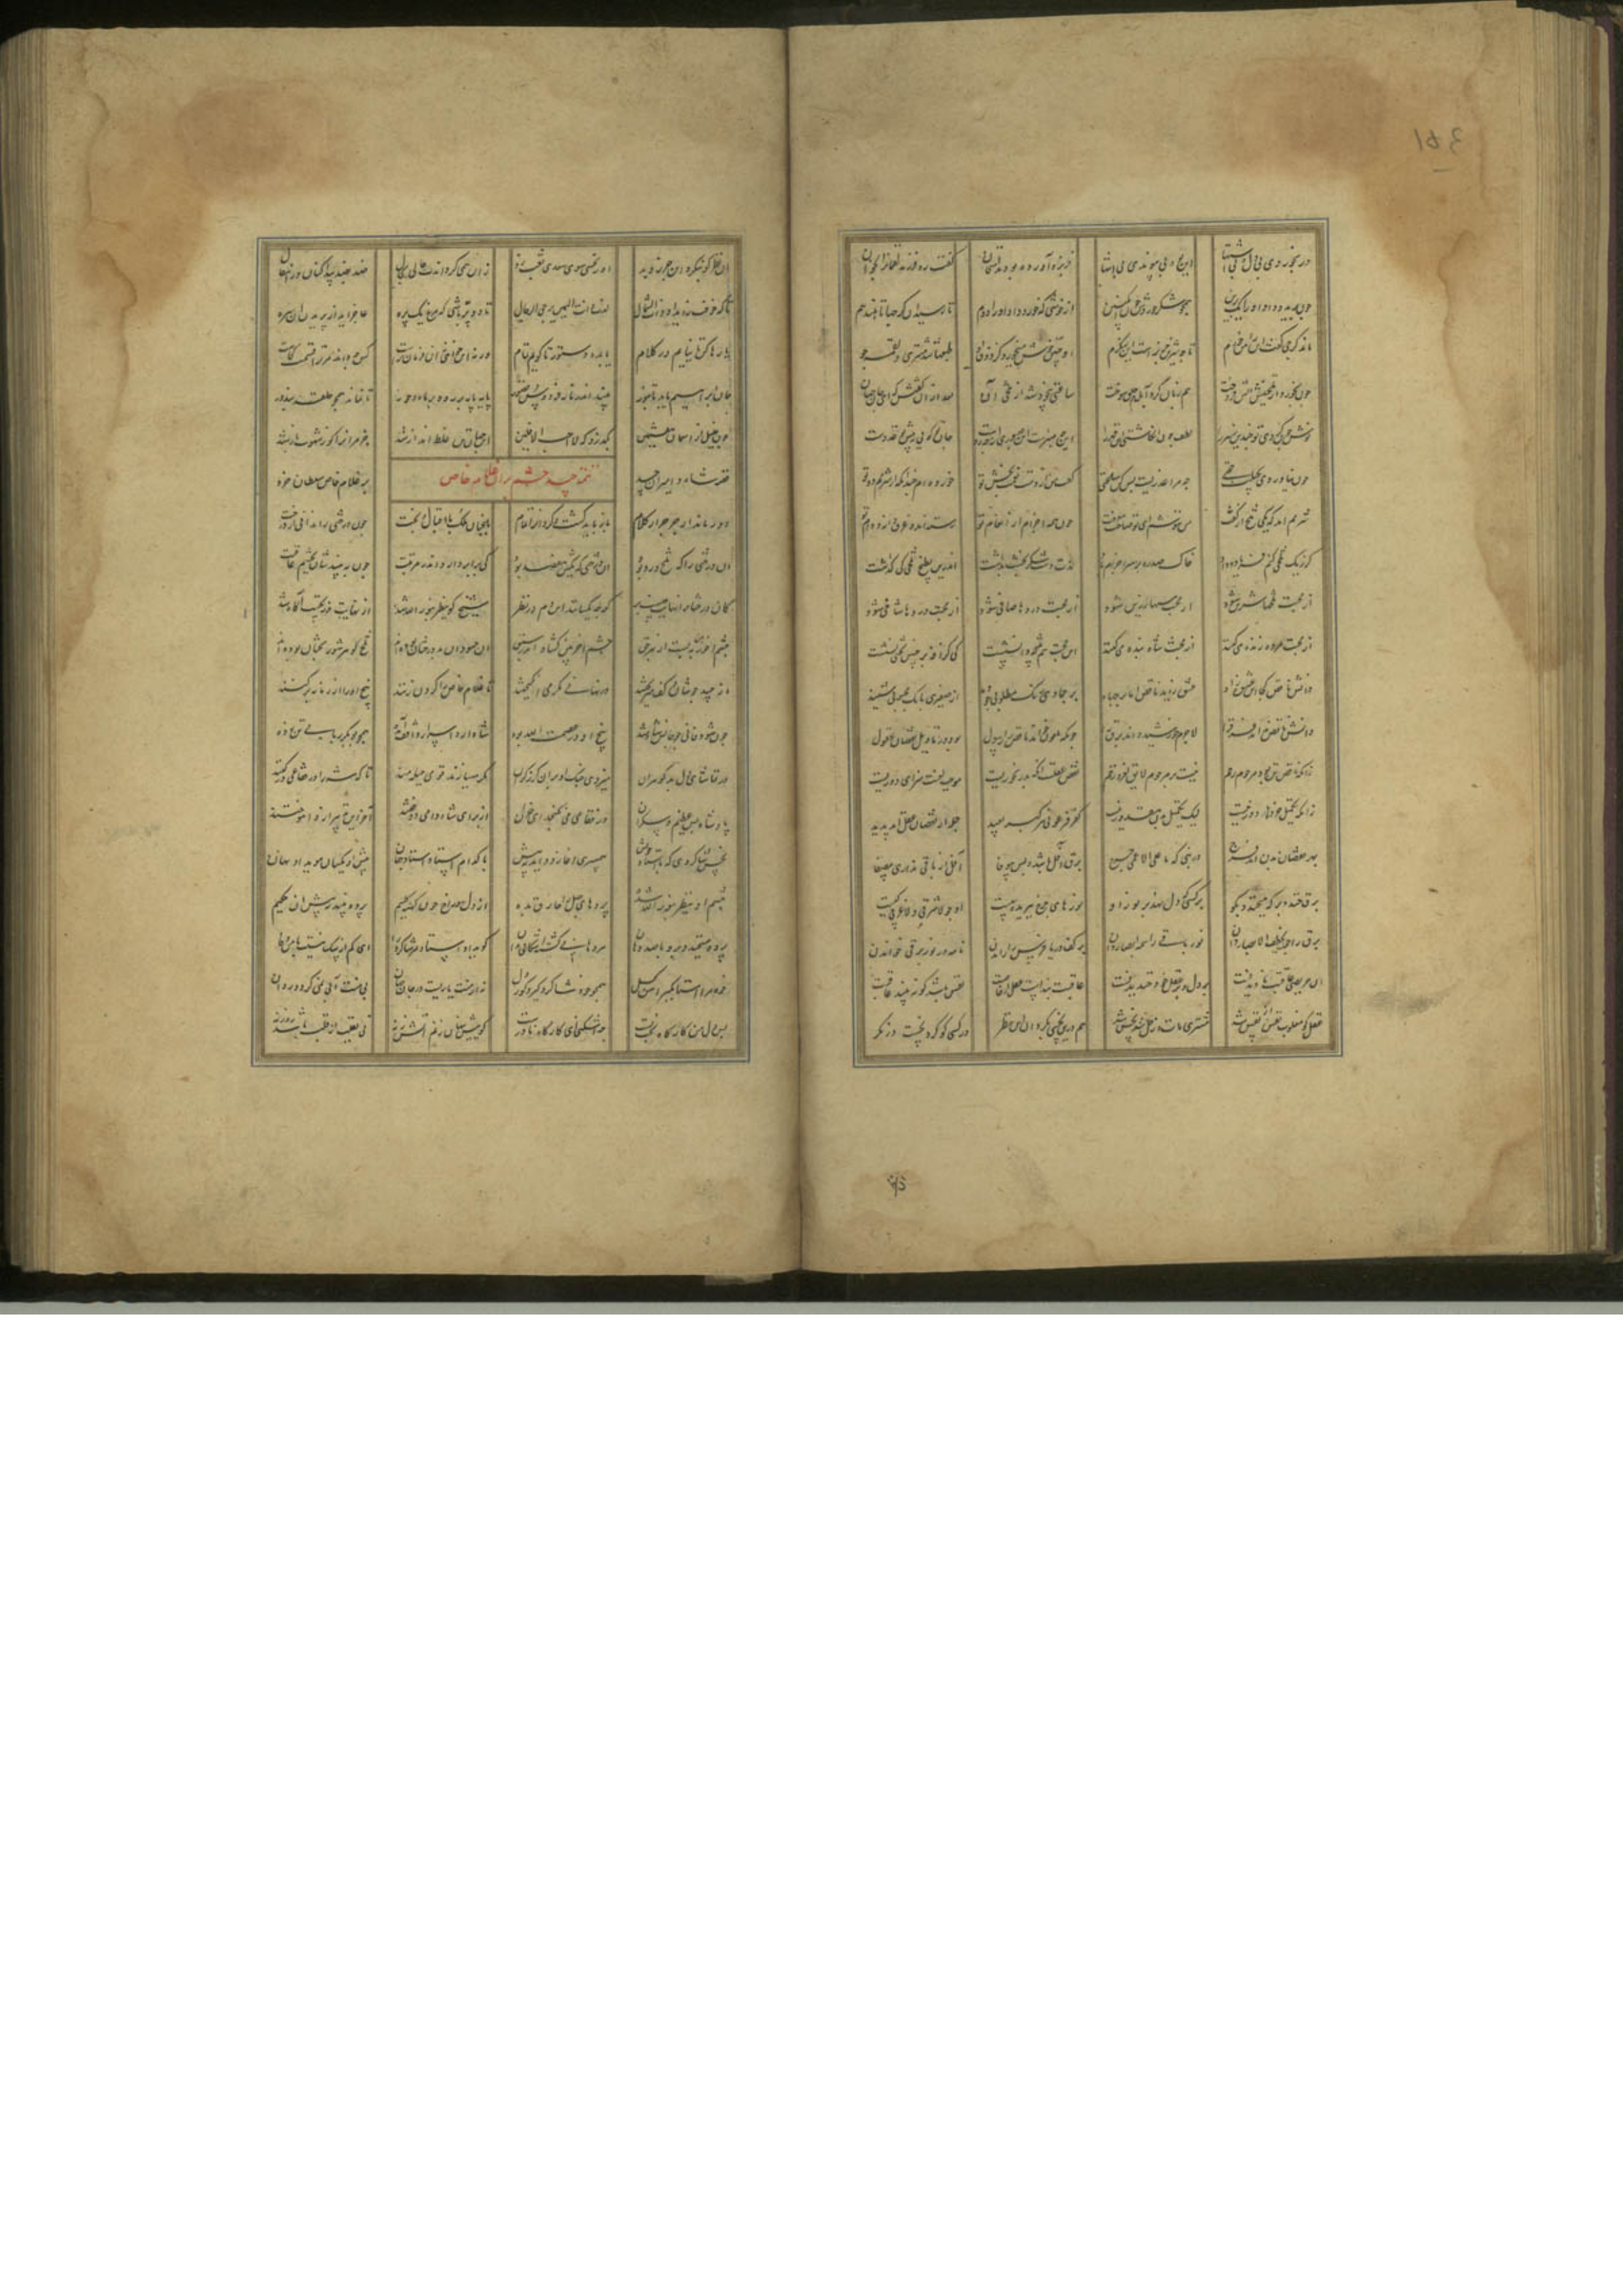 در بخوردی بی دل و بی اشتها این بود پیوندی بی منتها خربزه آورده بودند ارمغان گفت رو فرزند لقمان را بخوان
چون برید و داد او را یک برین همچو شکر خوردش و چون انگبین از خوشی که خورد داد او را دوم تا رسید آن کرجها تا هفدهم
ماند کرجی گفت این را من خورم تا چه شیرین خربزه است این بنگرم او چنین خوش میخورد کز ذوق او طبعها شد مشتهی و لقمه جو
چون بخورد از تلخیش آتش فروخت هم زبان کرد آبله هم حلق سوخت ساعتی بیخود شد از تلخی آن بعد از آن گفتش که ای جان جهان
نوش چون کردی تو چندین زهر را لطف چون انگاشتی این قهر را این چه صبرست این صبوری از چه روست
چون نیاوردی بحیلت حجتی که مرا عذریست بس کن ساعتی گفت من از دست نعمت بخش تو خورده ام چندانکه از شرمم دوتو
شرمم آمد که یکی تلخ از کفت من ننوشم ای تو صاحب معرفت چون همه اجزام از انعام تو رسته اند و غرق دانه و دام تو
کر ز یک تلخی کنم فریاد و داد خاک صد ره بر سر اجزام باد لذت دست شکر بخشت بداشت اندرین بطیخ تلخی کی گذاشت
از محبت تلخها شیرین شود از محبت مسها زرین شود از محبت دردها صافی شود از محبت دردها شافی شود
از محبت مرده زنده می کنند از محبت شاه بنده می کنند این محبت هم نتیجه دانشست کی گزافه بر چنین تختی نشست
دانش ناقص کجا این عشق زاد عشق زاید ناقص اما بر جماد بر جمادی رنگ مطلوبی چو دید از صفیری بانگ محبوبی شنید
دانش ناقص نداند فرق را لاجرم خورشید داند برق را چونکه ملعون خواند ناقص را رسول بود در تاویل نقصان عقول
زانکه ناقص تن بود مرحوم رحم نیست بر مرحوم لایق لعن و زخم نقص عقلست آنکه بد رنجوریست موجب لعنت سزای دوریست
زانکه تکمیل خردها دور نیست لیک تکمیل بدن مقدور نیست کفر و فرعونی هر کبر بعید جمله از نقصان عقل آمد پدید
بهر نقصان بدن آمد فرج در نبی که ما علی الاعمی حرج برق آفل باشد و بس بی وفا آفل از باقی ندانی بی صفا
برق خندد بر که میخندد بگو بر کسی که دل نهد بر نور او نورهای برق ببریده پیست او چو لا شرقی و لا غربی کیست
برق را خو یخطف الابصار دان نور باقی را همه ابصار دان بر کف دریا فرس را راندن نامه در نور برقی خواندن
از حریصی عاقبت نادیدنست بر دل و بر عقل خود خندیدنست عاقبت بینست عقل از خاصیت نفس باشد کو نبیند عاقبت
عقل کو مغلوب نفس او نفس شد مشتری مات زحل شد نحس شد هم درین نحسی بگردان این نظر در کسی کو کرد نحست در نگر
آن نظر که بنگرد این جر و مد او ز نحسی سوی سعدی نقب زد زان همی گرداندت حالی بحال ضد بضد پیدا کنان در انتقال
تا که خوفت زاید از ذات الشمال لذت ذات الیمین یرجی الرجال تا دو پر باشی که مرغ یک پره عاجز آید از پریدن ای سره
یا رها کن تا نیایم در کلام یا بده دستور تا گویم تمام ورنه این خواهی نه آن فرمان تراست کس چه داند مر ترا مقصد کجاست
جان ابراهیم باید تا بنور بیند اندر نار فردوس و قصور پایه پایه بر رود بر ماه و خور تا نماند همچو حلقه بند در
چون خلیل از آسمان هفتمین بگذرد که لا احب الافلین این جهان تن غلط انداز شد جز مر آنرا کو ز شهوت باز شد
تتمه حسد حشم بر آن غلام خاص
قصه شاه و امیران و حسد بر غلام خاص سلطان خرد
دور ماند از جر جرار کلام باز باید گشت و کرد آنرا تمام باغبان ملک با اقبال و بخت چون درختی را نداند از درخت
آن درختی را که تلخ و رد بود آن درختی که یکش هفصد بود کی برابر دارد اندر تربیت چون ببیندشان بچشم عاقبت
کان درختان را نهایت چیست بر گرچه یکسانند این دم در نظر شیخ کو ینظر بنور الله شد از نهایت وز نخست آگاه شد
چشم آخر بین ببست از بهر حق چشم آخر بین گشاد اندر سبق آن حسودان بد درختان بوده اند تلخ گوهر شوربختان بوده اند
از حسد جوشان و کف میریختند در نهانی مکر می انگیختند تا غلام خاص را گردن زنند بیخ او را از زمانه بر کنند
چون شود فانی چو جانش شاه بود بیخ او در عصمت الله بود شاه از آن اسرار واقف آمده همچو بوبکر ربابی تن زده
در تماشای دل بدگوهران میزدی خنبک بر آن کوزه گران مکر میسازند قومی حیله مند تا که شه را در فقاعی در کنند
پادشاه بس عظیم و بیکران در فقاعی می نگنجد ای خران از برای شاه دامی دوختند آخر این تدبیر ازو آموختند
نحس شاگردی که با استاد خویش همسری آغازد و آید به پیش با کدام استاد استاد جهان پیش او یکسان هویدا و نهان
چشم او ینظر بنور الله شده پردهای جهل را خارق بده از دل سوراخ چون کهنه گلیم پرده بندد به پیش آن حکیم
پرده میخندد برو با صد دهان هر دهانی گشته اشکافی بر آن گوید آن استاد مر شاگرد را ای کم از سگ نیستت با من وفا
خود مرا استا مگیر آهن گسل همچو خود شاگرد گیر و کوردل نه از منت یاریست در جان و روان بی منت آبی نمی گردد روان
پس دل من کارگاه بخت تست چه شکنی این کارگاه نادرست گوییش پنهان زنم آتش زنه نی بقلب از قلب باشد روزنه